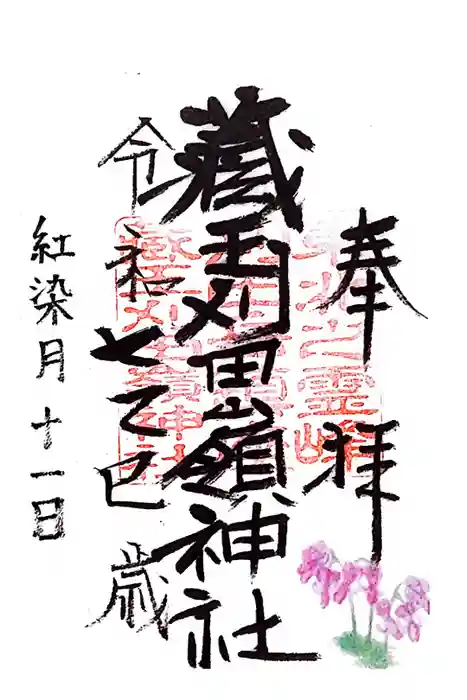 奉拝
藏王刈田嶺神社
令和七乙巳歳
紅染月十一日